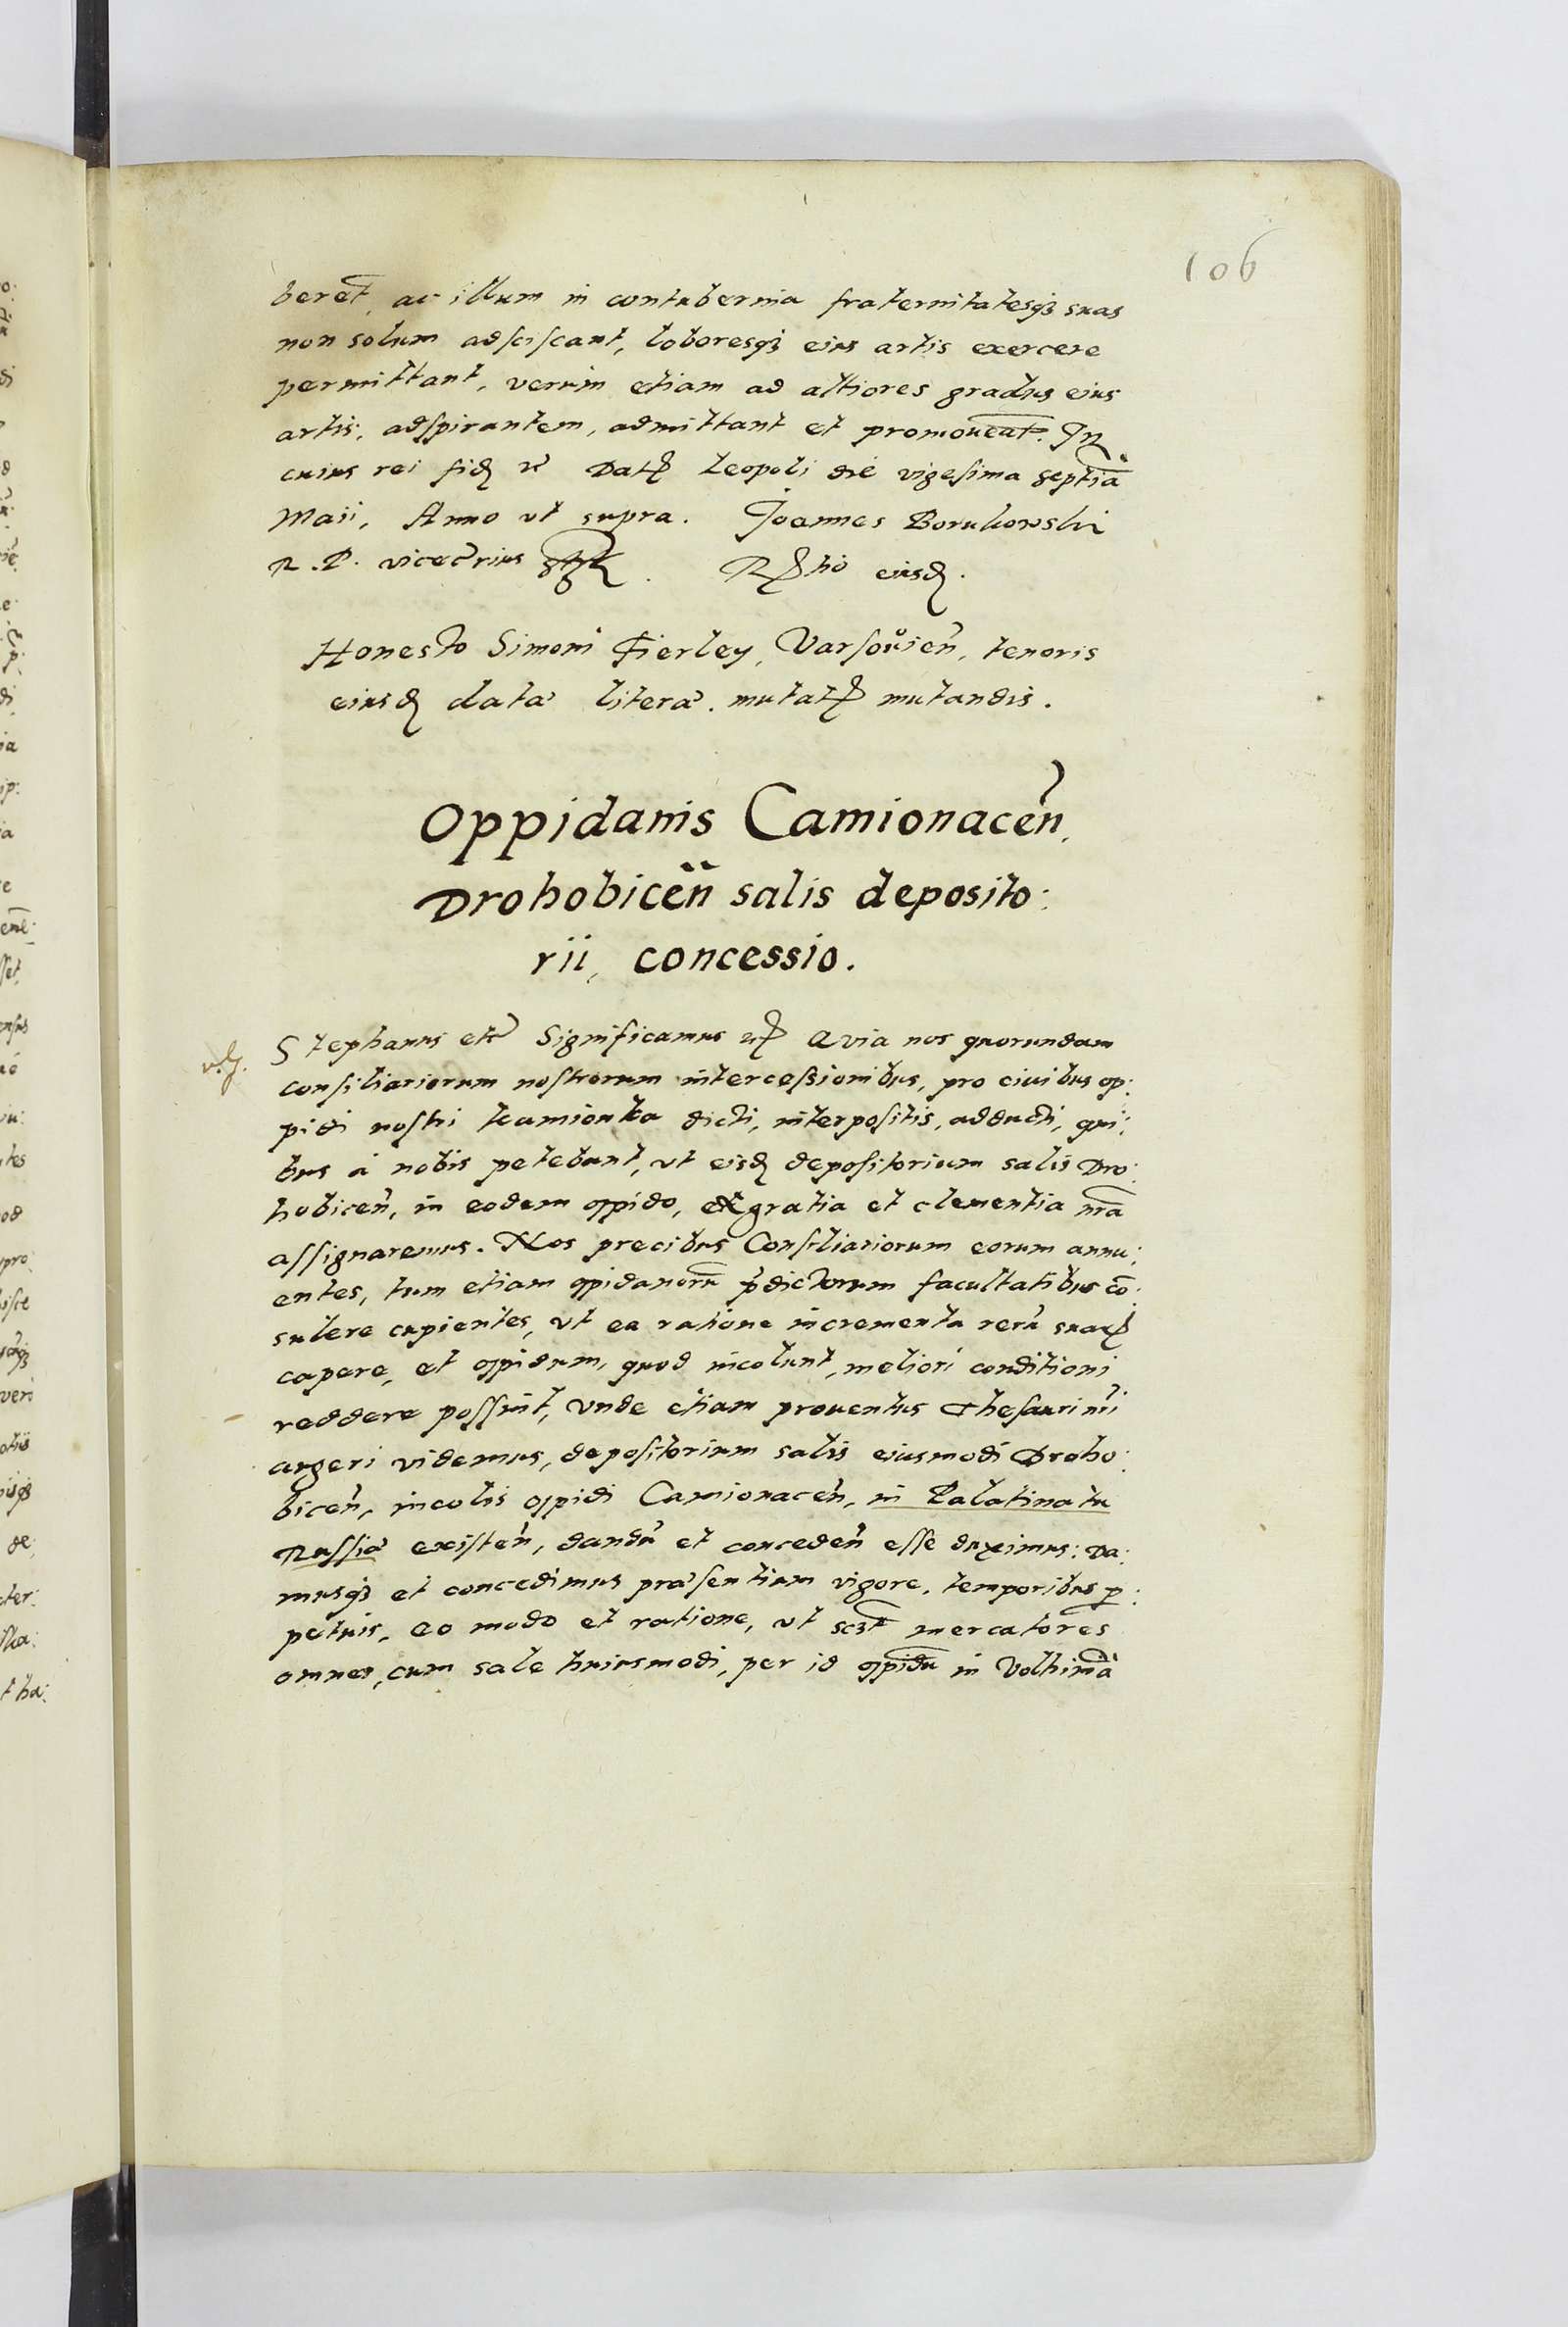 106
beret, ac illum in contubernia fraternitatesqȝ suas
non solum adsciscant, laboresqȝ eius artis exercere
permittant, verum etiam ad altiores gradus eius
artis, adspirantem, admittant et promoueāt. In
cuius rei fidꝭ Datꝭ Leopoli die vigesima septiā
Maii, Anno ut supra. Joannes Borukowski
R. P. vicecrius Rꝭtio eiusdꝭ.
Honesto Simoni Fierley, Varsouien̄, tenoris
eiusdꝭ data litera. mutatꝭ mutandis.
Oppidanis Camionacen̄,
Drohobicen̄ salis deposito:
rii, concessio.
Stephanus etc Significamus Quia nos quorundam
consiliariorum nostrorum intercessionibus, pro ciuibus op:
pidi nostri Kamionka dicti, interpositis, adducti, qui:
bus à nobis petebant, ut eisdꝭ depositorium salis Dro:
hobicen̄, in eodem oppido, ex gratia et clementia nr̄a
assignaremus. Nos precibus Consiliariorum eorum annu:
entes, tum etiam opidanorū p̄dictorum facultatibus cō:
sulere cupientes, ut ea ratione incrementa rerū suarꝭ
capere, et oppidum, quod incolunt, meliori conditioni
reddere possint, unde etiam prouentus Thesauri nr̄i
augeri videmus, depositorium salis eiusmodi Droho:
bicen̄, incolis oppidi Camionacen̄, in Palatinatu
Russia existen̄, dandū et conceden̄ esse duximus: Da:
musqȝ et concedimus præsentium vigore, temporibus p̱:
petuis, eo modo et ratione, ut scȝt mercatores
omnes, cum sale huiusmodi, per id opidū in Volhiniā